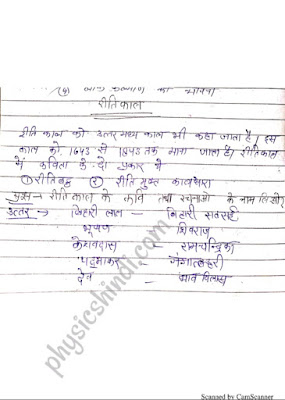 (५) लोक कल्याण की भावना
रीतिकाल
रीति काल को उत्तर मध्य काल भी कहा जाता है, इस
काल को 1643 से 1843 तक माना जाता है। रीतिकाल
में कविता के दो प्रकार थे
① रीतिबद्ध ② रीति मुक्त काव्यधारा
प्रश्न - रीति काल के कवि तथा रचनाओं के नाम लिखो?
उत्तर → बिहारी लाल - बिहारी सतसई
भूषण - शिवराज
केशवदास - रामचन्द्रिका
पद्माकर - गंगालहरी
देव - भाव विलास
physicshindi.com
Scanned by CamScanner